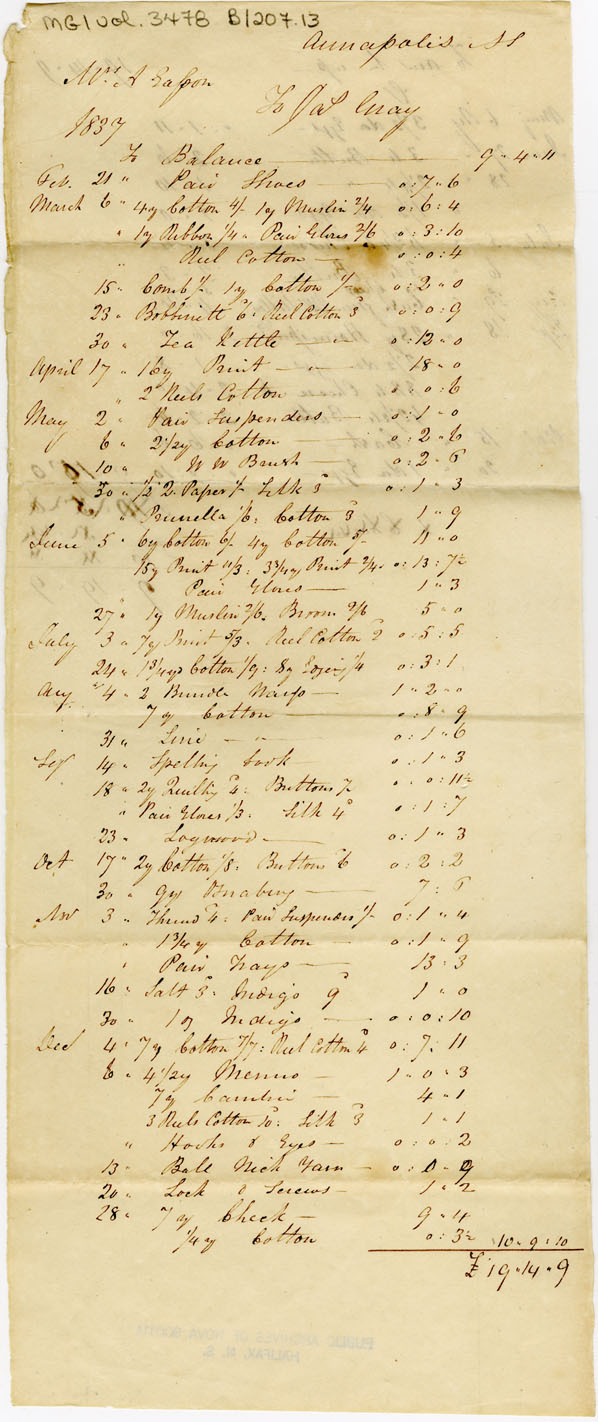 MG1 Vol. 3478 B/207.13
Annapolis NS
Mrs A Easson
To Jas Gray
1837
To Balance 9 " 4 " 11
Feb. 21 " Pair Shoes 0 : 7 " 6
March 6 " 4y Cotton 4/- 1y Muslin 2/4 0 : 6 : 4
" 1y Ribbon 1/4 " Pair Gloves 2/6 0 : 3 : 10
" Reel Cotton 0 : 0 : 4
15 " Comb 1/- 1y Cotton 1/- 0 : 2 " 0
23 " Bobbinett 6. Reel Cotton 3 0 : 0 : 9
30 " Tea Kettle 0 : 12 " 0
April 17 " 16y Print 18 " 0
" 2 Reels Cotton 0 : 0 : 6
May 2 " Pair Suspenders 0 : 1 " 0
6 " 2 1/2y Cotton 0 : 2 " 6
10 " W W Brush 0 : 2 " 6
30 " 1/2 2. Paper 1/- Silk 3 0 : 1 " 3
" Prunella 1/6 : Cotton 3 1 " 9
June 5 " 6y Cotton 6/- 4y Cotton 5/- 11 " 0
15y Print 11/3 : 3 3/4y Print 2/4 0 : 13 : 7 1/2
Pair Gloves 1 " 3
27 " 1y Muslin 2/6. Broom 2/6 5 " 0
July 3 " 7y Print 5/3. Reel Cotton 2 0 : 5 : 5
24 " 1 3/4yd Cotton 1/9 : 8y Edging 1/4 0 : 3 : 1
Aug 4 " 2 Bundle 1 " 2 " 0
7 y Cotton 0 : 8 " 9
31 " 0 : 1 " 6
Sep 14 " Spelling Book 0 : 1 " 3
18 " 2y 4 : Buttons 0 : 0 : 11 1/2
" Pair Gloves 1/3 : Silk 4 0 : 1 : 7
23 " Logwood 0 : 1 " 3
Oct 17 " 2y Cotton 1/8 : Buttons 6 0 : 2 : 2
30 " 9y Osnaberg 7 : 6
Nov 3 " Thread 4 : Pair Suspenders 1/- 0 : 1 " 4
" 1 3/4 y Cotton 0 : 1 " 9
" Pair Trays 13 : 3
16 " Salt 3. Indigo 9 1 " 0
30 " 1 oz Indigo 0 : 0 : 10
Dec 4 " 7y Cotton 7/7 : Reel Cotton 4 0 : 7 : 11
6 " 4 1/2y Merino 1 " 0 : 3
7y 4 " 1
3 Reels Cotton 10 : Silk 3 1 " 1
" Hooks & Eyes 0 : 0 : 2
13 " Ball Wick Yarn 0 : 0 " 9
20 " Lock & Screws 1 " 2
28 " 7 y Check 9 " 4
1/4 y Cotton 0 : 3 1/2 10 " 9 : 10
£ 19 " 14 " 9
PUBLIC ARCHIVES OF NOVA SCOTIA
HALIFAX, N. S.